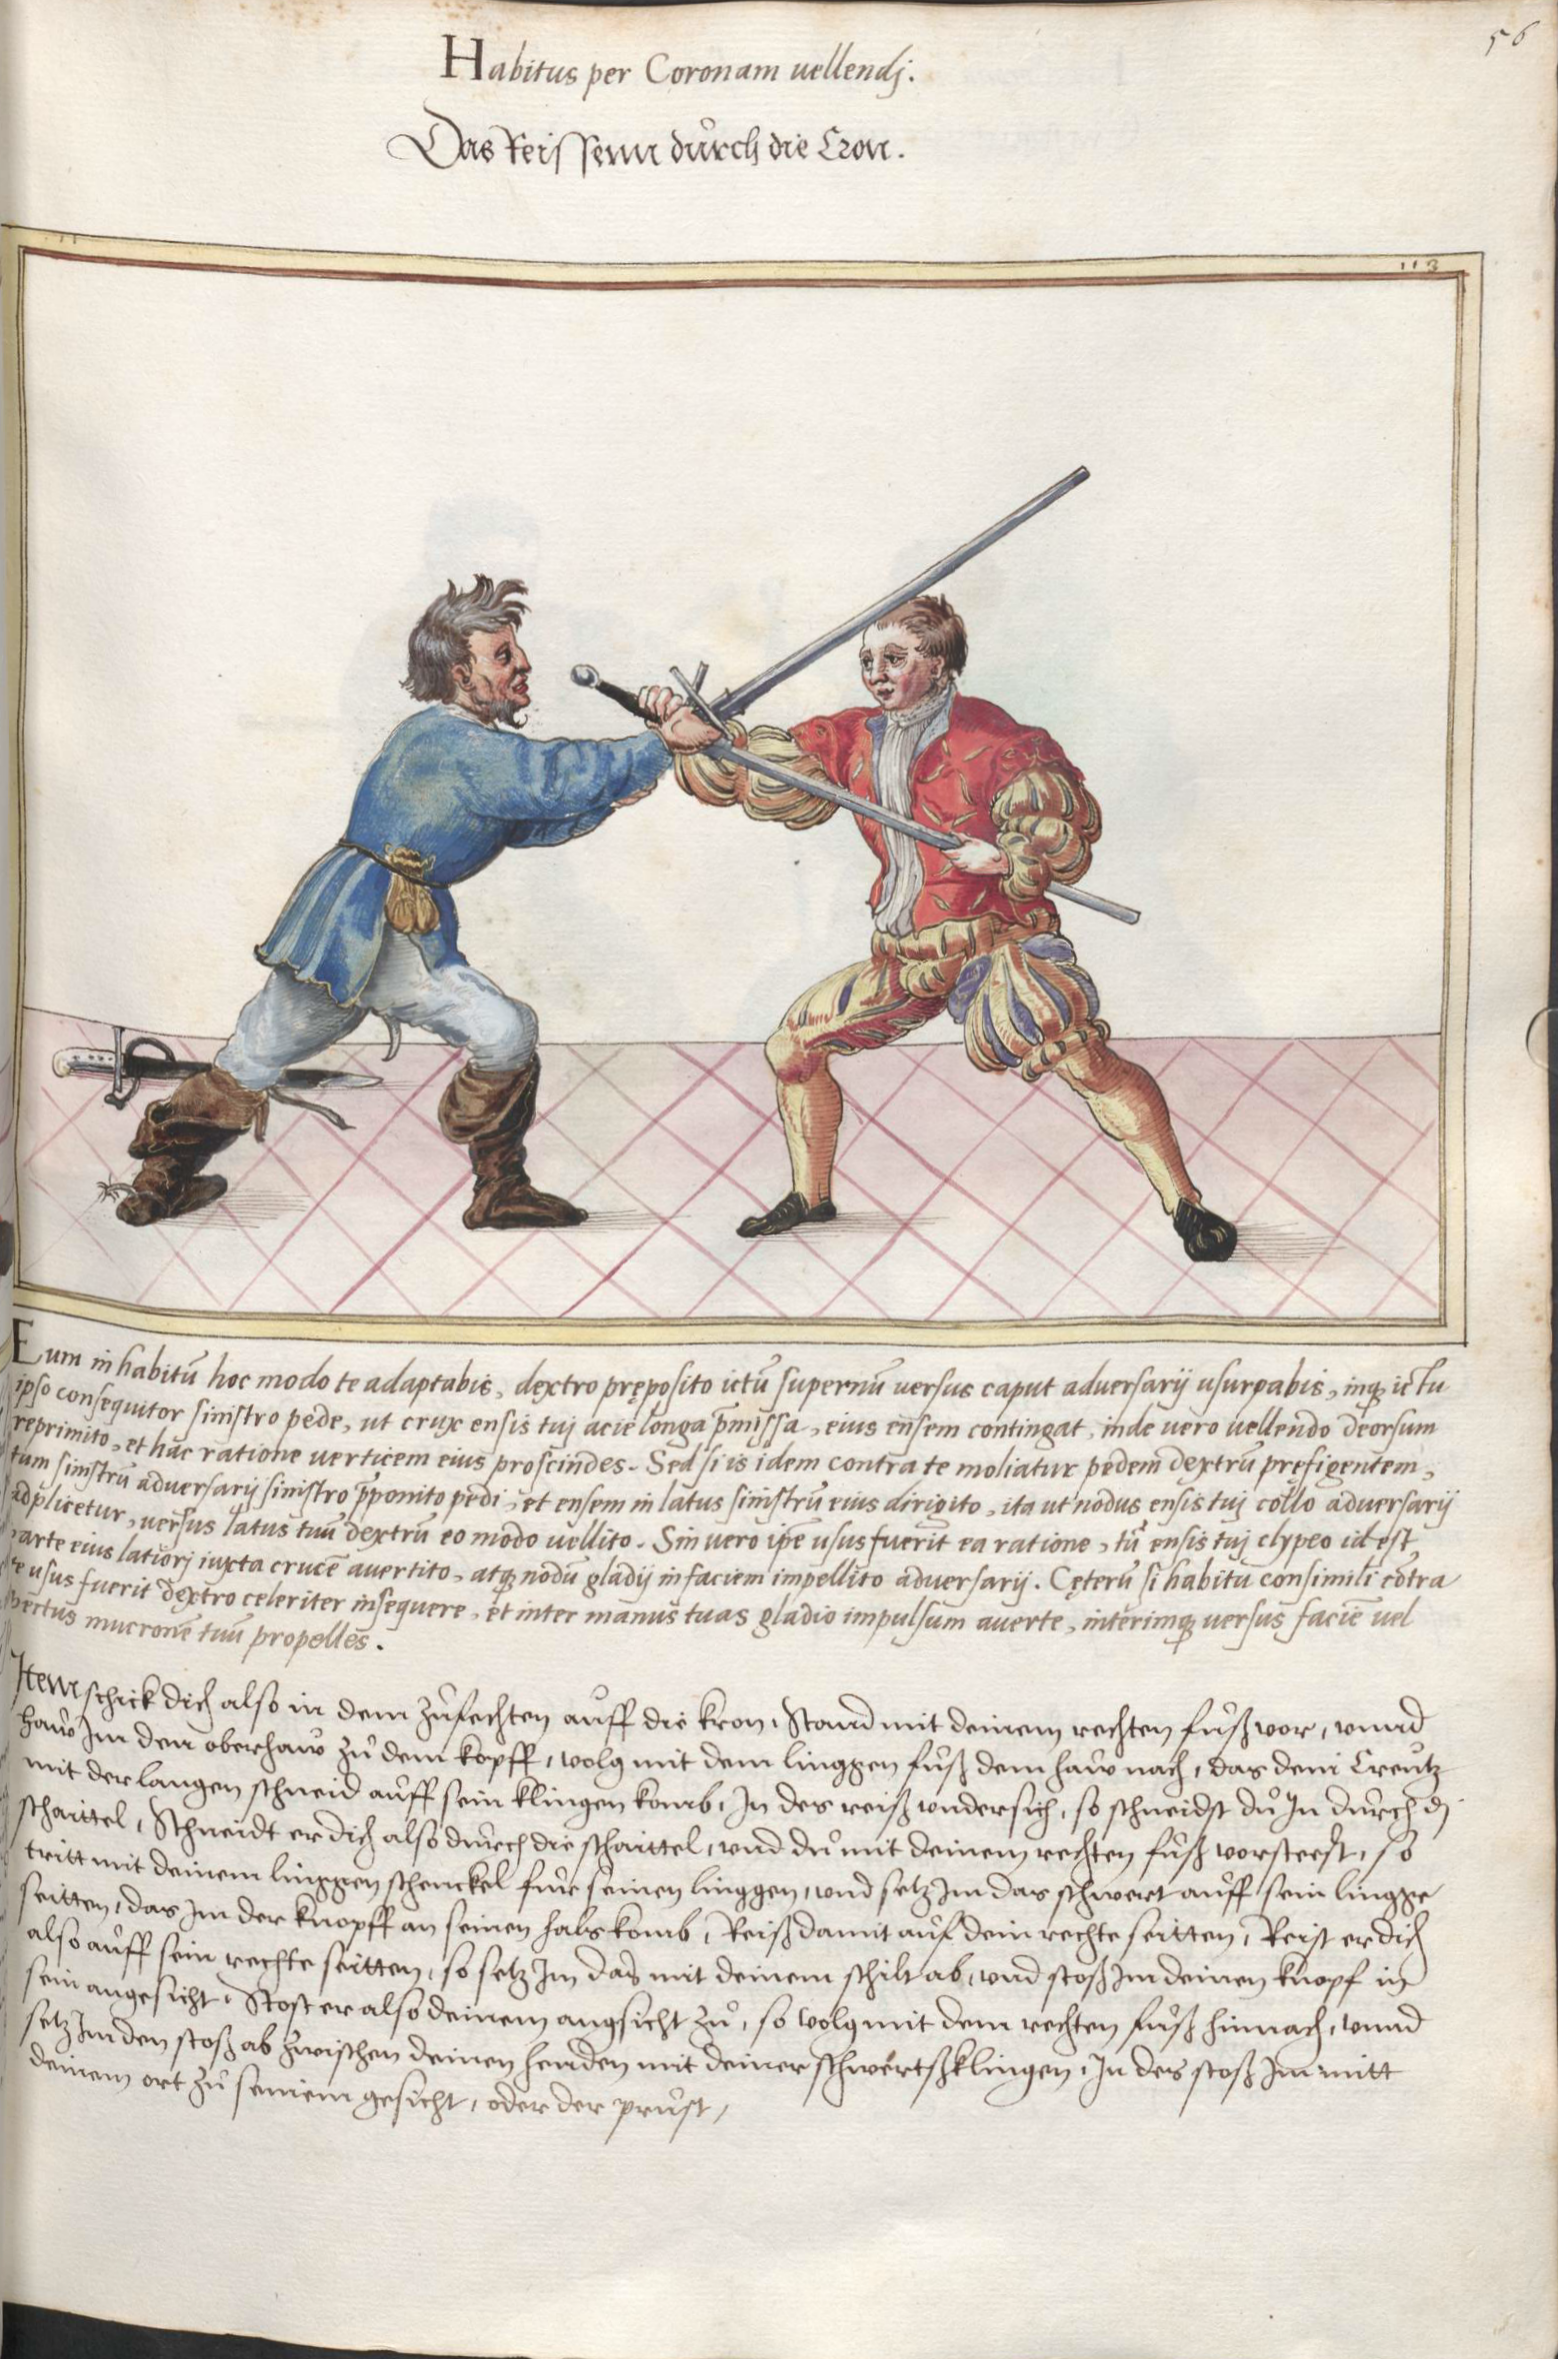 56
Habitus per Coronam uellendj.
Das Reissenn důrch die Cron.
113
Eum in habitū hoc modo te adaptabis, dextro pręposito ictū supernū uersus caput adversarij usurpabis, inq̨ ictu
ipso consequitor sinistro pede, ut crux ensis tuj acie longa p̄missa, eius ensem contingat, inde uero uellendo deorsum
reprimito, et hac ratione uerticem eius proscindes. Sed si is idem contra te moliatur pedem dextrū pręfigentem,
tum sinistrū adversarij sinistro p̄ponito pedi, et ensem in latus sinistrū eius dirigito, ita ut nodus ensis tuj collo adversarij
adplicetur, uersus latus tuū dextrū eo modo uellito. Sin uero ip̄e usus fuerit ea ratione, tū ensis tuj clypeo id est
parte eius latiorj iuxta crucē auertito, atq̨ nodū gladij in faciem impellito adversarij. Cęterū si habitu consimili cōtra
te usus fuerit dextro celeriter insequere, et inter manus tuas gladio impulsum auerte, interimq̨ uersus faciē uel
pectus mucronē tuū propelles.
Item schick dich also in dem zůfechten auff die kron, Stand mit deinem rechten fůß vor, vnnd
haw Im den oberhaw zů dem kopff, volg mit dem linggen fůß dem haw nach, das dein Creutz
mit der langen schneid auff sein klingen komb, In des reiß vndersich, so schneidst dů In důrch dj
schaittel, Schneidt er dich also důrch die schaittel, vnd dů mit deinem rechten fůß vorsteest, so
tritt mit deinem linggen schenckel fůr seinen linggen, vnd setz Im das schwert auff sein lingge
seitten, das Im der knopff an seinen hals komb, Reiß damit auf dein rechte seitten, Reist er dich
also auff sein rechte seitten, so setz Im das mit deinem schilt ab, vnd stoß Im deinen knopf in
sein angesicht, Stost er also deinem angsicht zů, so volg mit dem rechten fůß hinnach, vnnd
setz Im den stoß ab zwischen deinen henden mit deiner schwertsklingen, In des stoß Im mitt
deinem ort zů seinem gesicht, oder der prust,